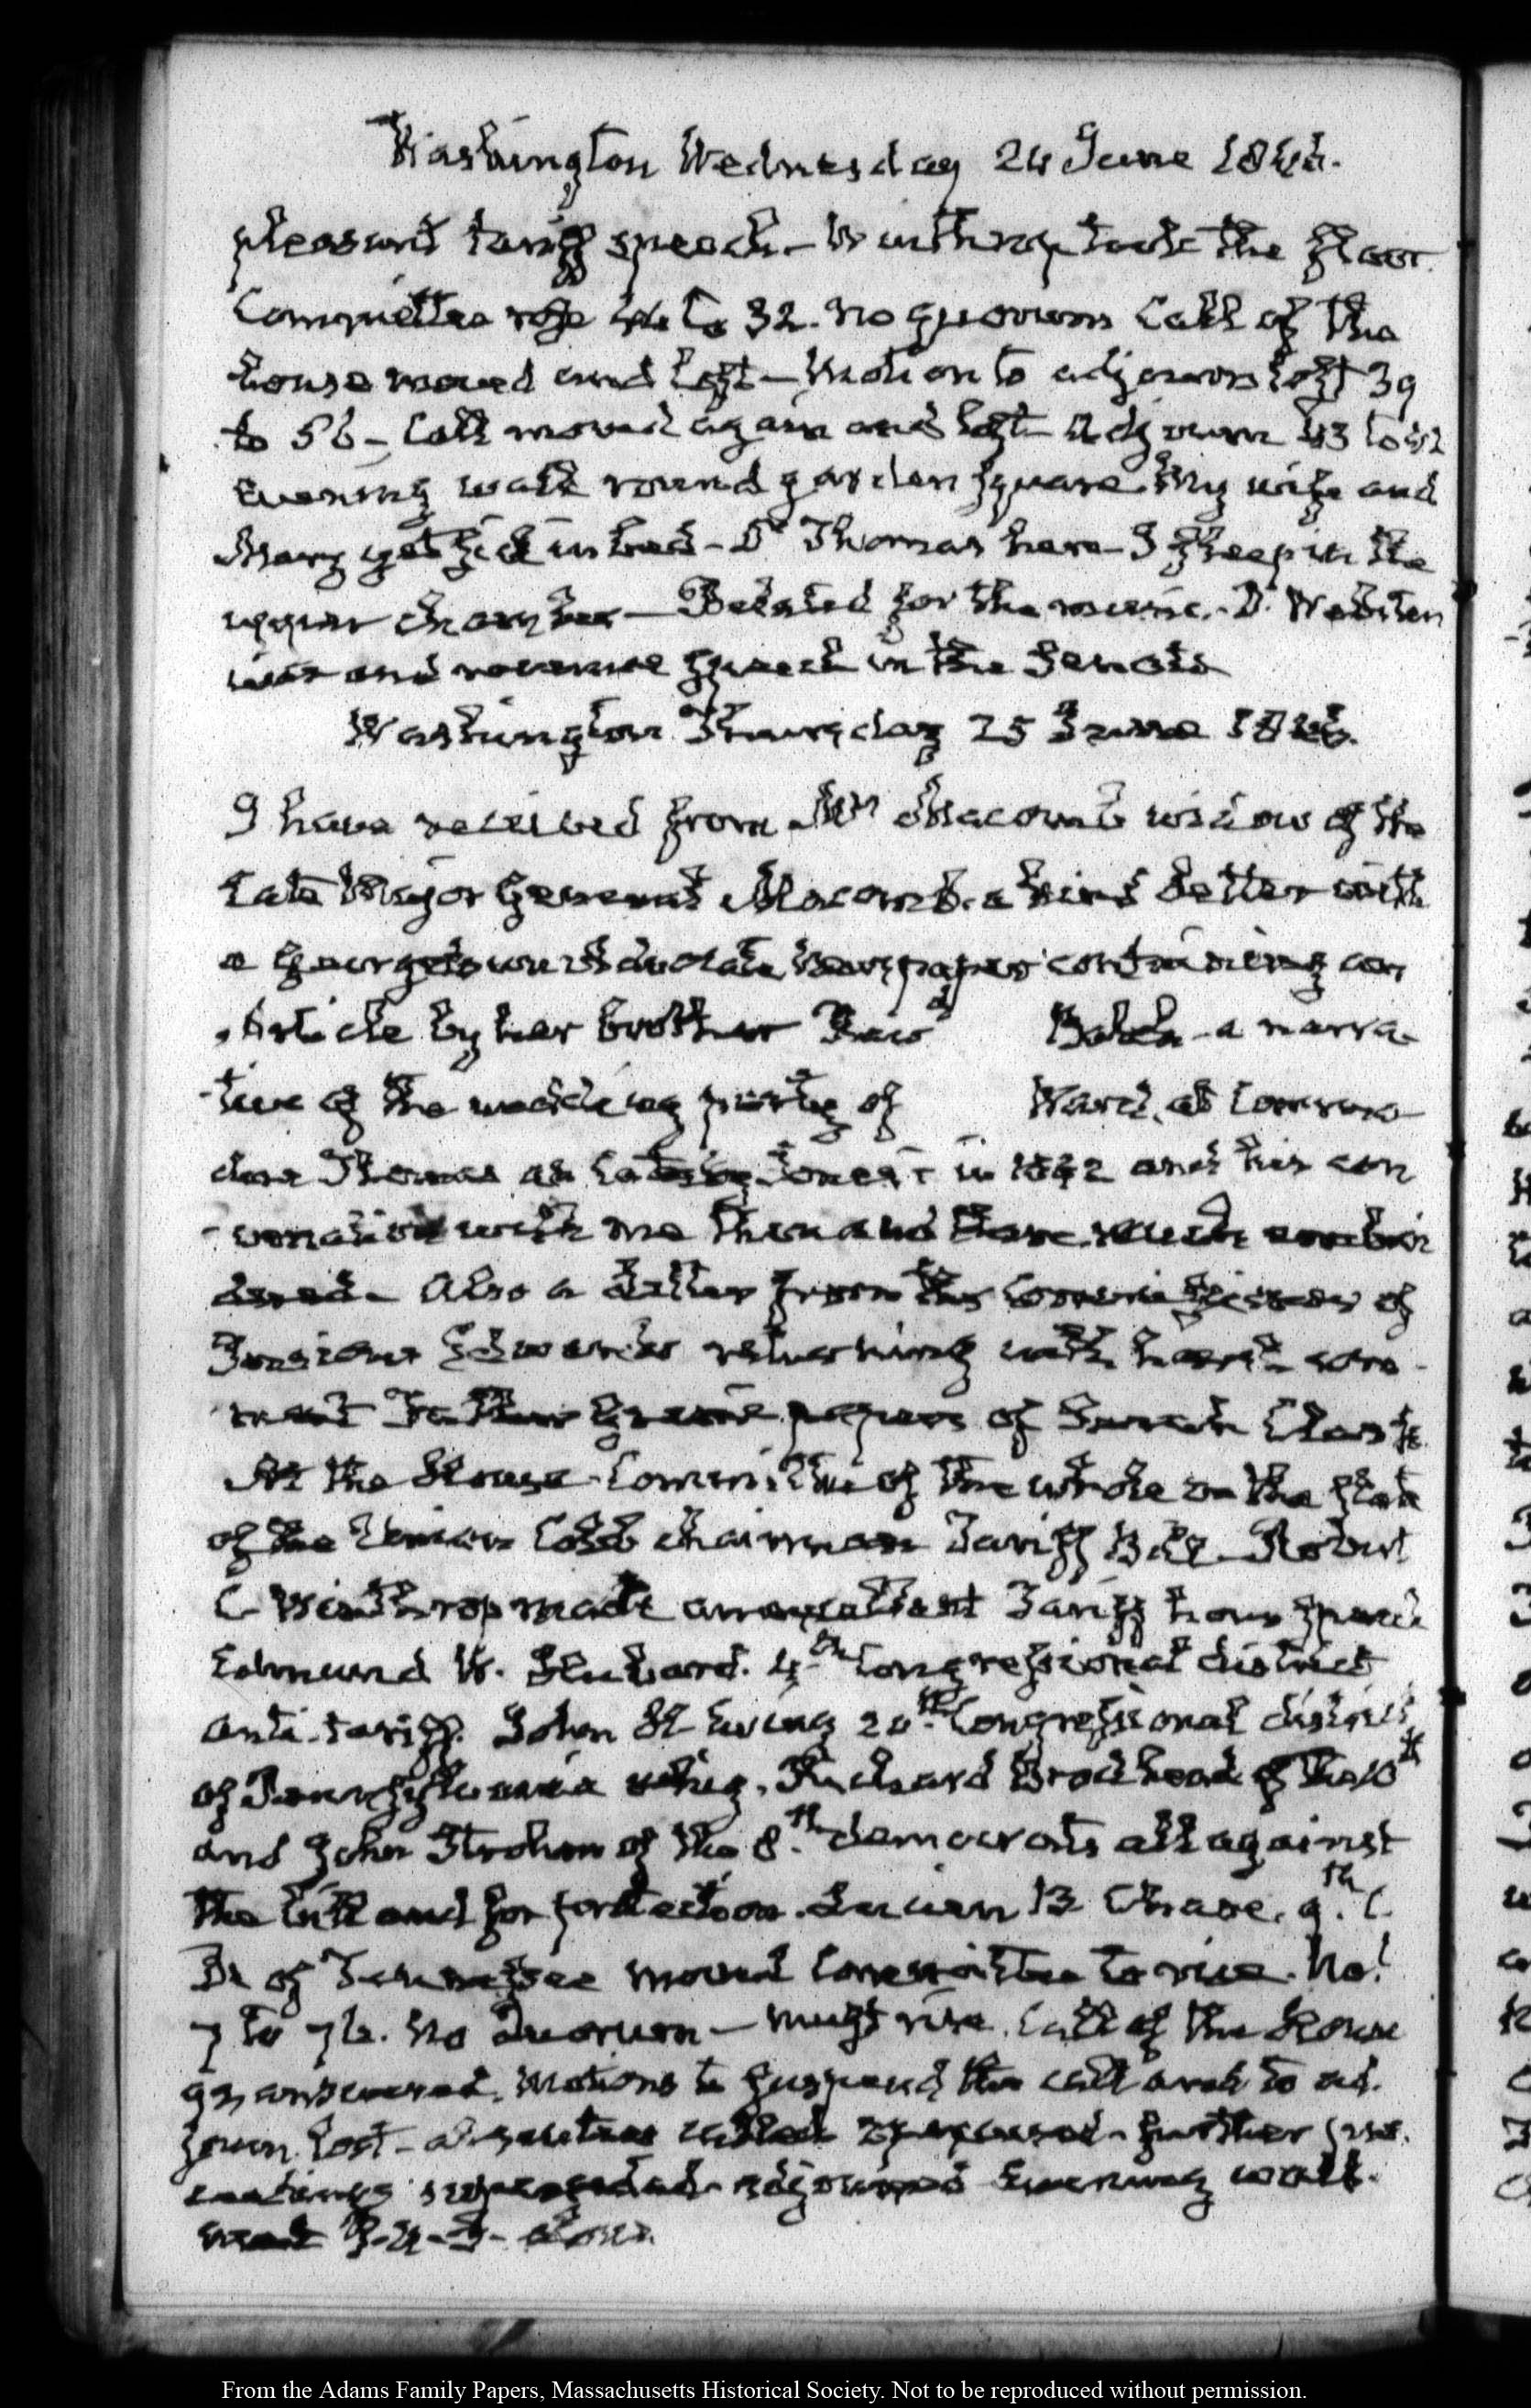 Washington Wednesday 24 June 1846.
pleasant tariff speech - Winthrop took the floor
Committee rose to 32. no quorum Call of the
house moved and lost - Motion to adjourn lost 39
to 56 - Call moved again and lost - Adjourn 43 to
Evening walk round garden square. My wife and
Mary yet sick in bed - Dr Thomas here - I sleep in the
upper chamber - Belated for the music. - D. Webster
war and revenue speech in the Senate
Washington Thursday 25 June 1846.
I have received from Mrs Macomb widow of the
late Major General Macomb. a kind letter with
a Georgetown Advocate Newspaper containing an
Article by her brother Revd Balch - a narra-
tive of the wedding party of Ward, at Commo-
dore Thomas ap Catesby Jones's in 1842 and his con
versation with me then and there much
Also a letter from the Commissioner of
Pensions Edwards returning with
the papers of Sarah
At the House - Committee of the whole on the state
of the Union Cobb chairman Tariff Bill - Robert
C Winthrop made an excellent Tariff hour speech
Edmund W. Hubard. 4th Congressional district
anti-tariff. John H Ewing 20th Congressional district
of Pennsylvania whig. Richard Brodhead of the 10th
and John Strohm of the 8th democrats all against
the bill and for protection. Lucien B Chase. 9th C.
D. of Tennessee moved Committee to rise. No!
7 to 76. no Quorum - must rise. Call of the House
93 answered. Motions to suspend the call and to ad.
journ. lost - absentees called excused - further pro.
ceedings suspended - adjourned Evening walk.